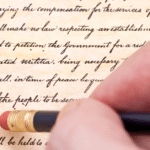 the compensation for the services of
make no law respecting an establishmen
to petition the Government for a re
ulated militia, being necessary
ll, in time of peace be qua
the people to be se
ll be held to